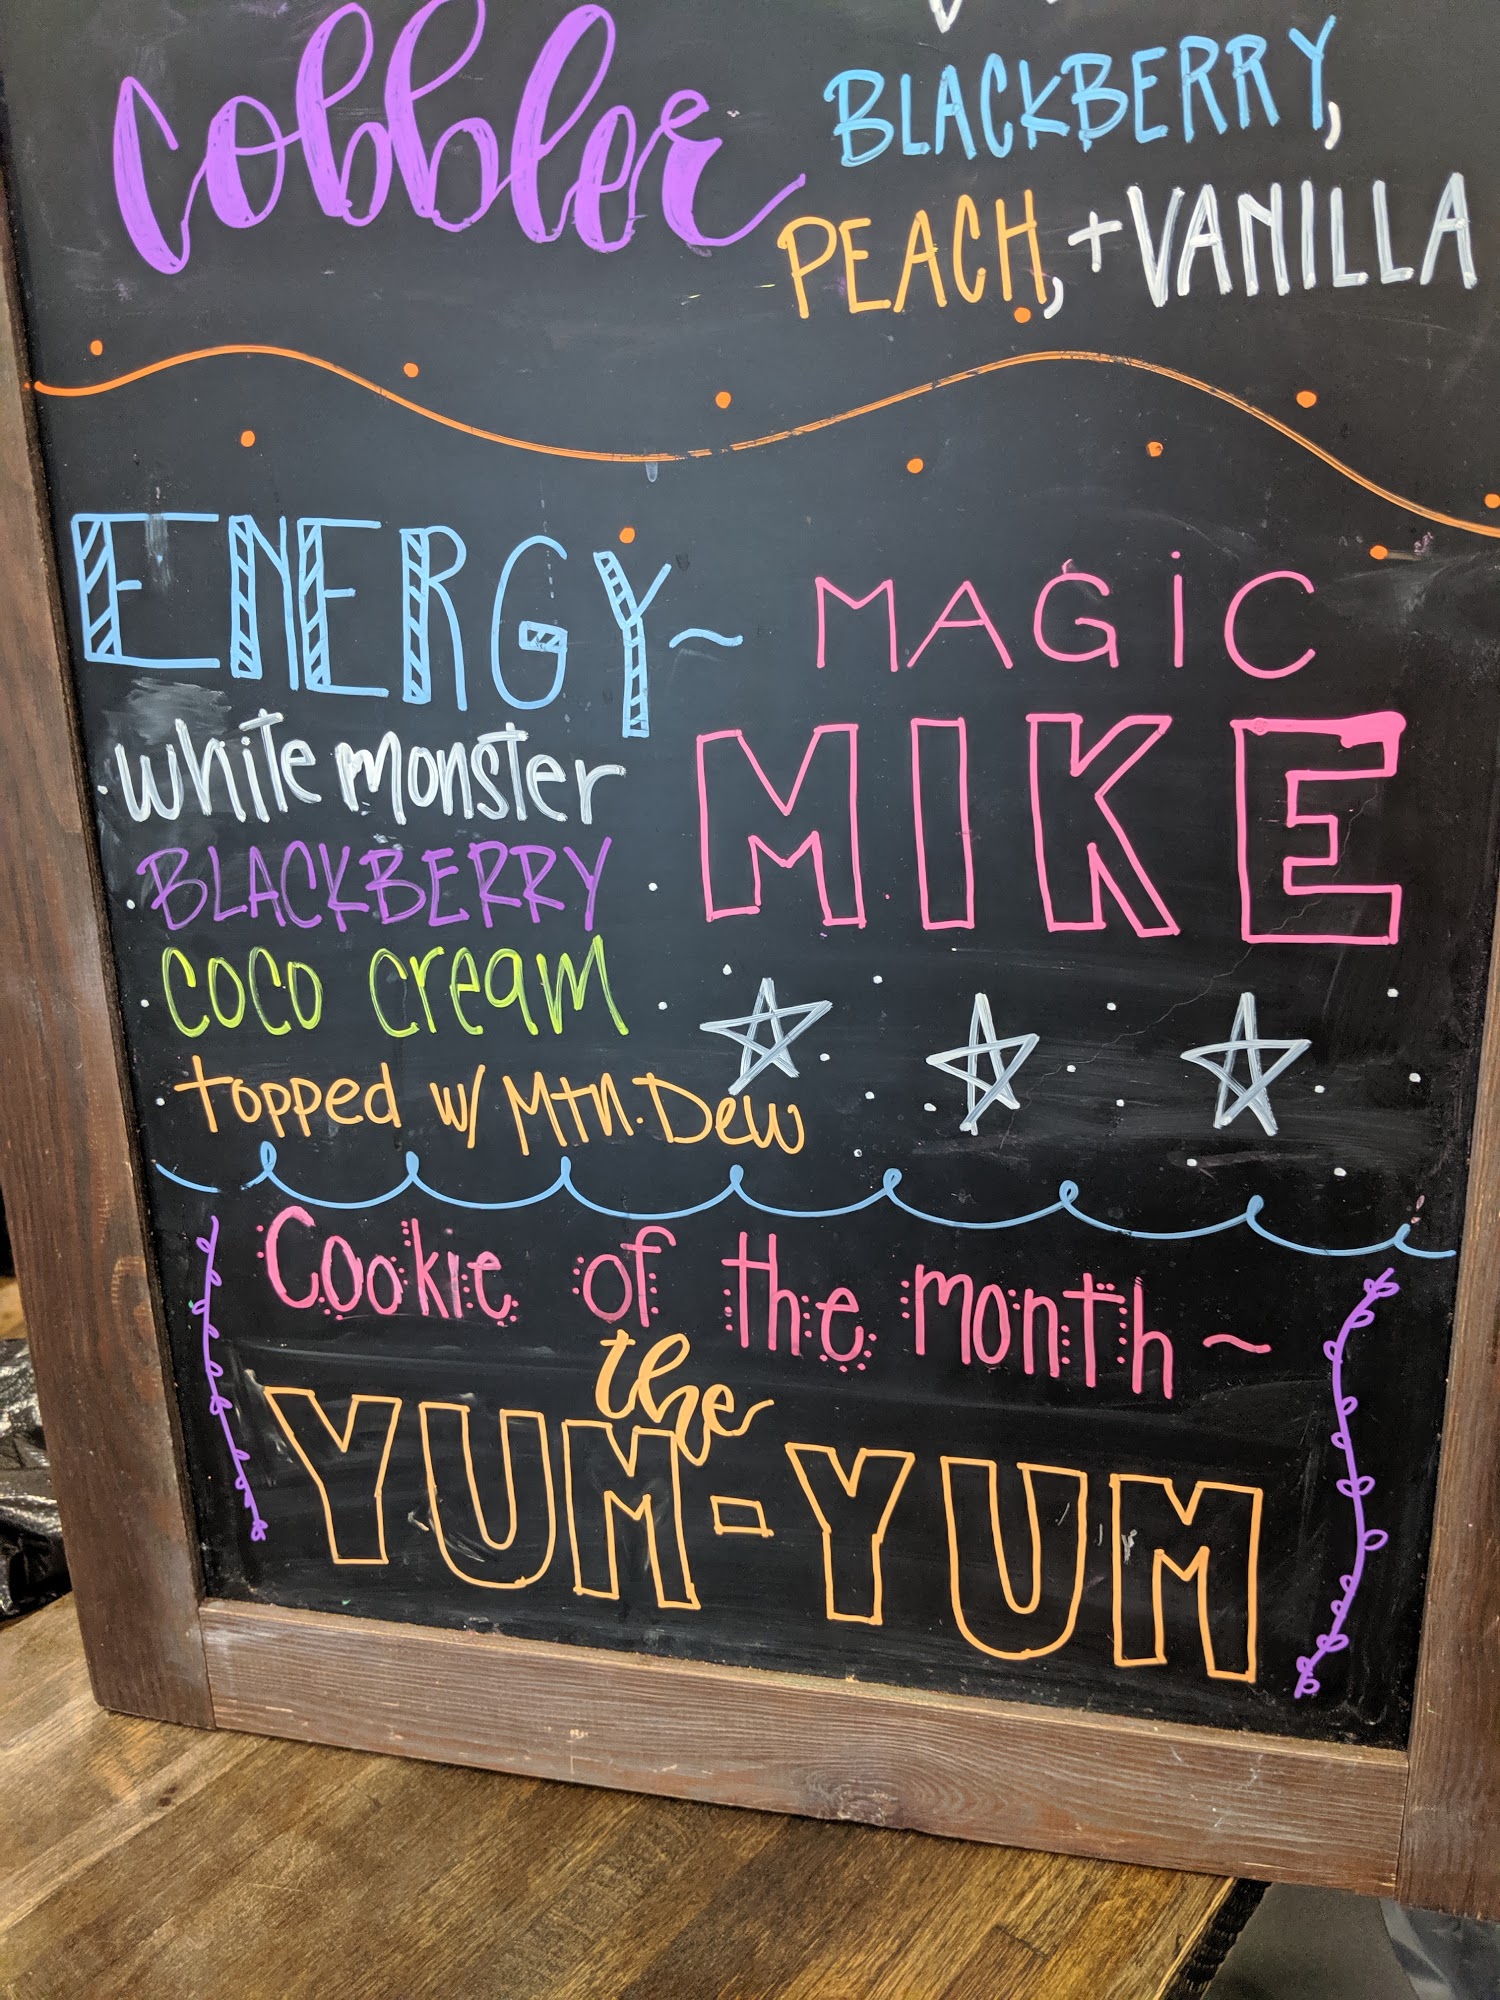 Cobbler
BLACKBERRY,
PEACH, + VANILLA
ENERGY~
white monster
BLACKBERRY
coco cream
topped w/ Mtn. Dew
MAGiC
MIKE
Cookie of the month ~
the
YUM-YUM